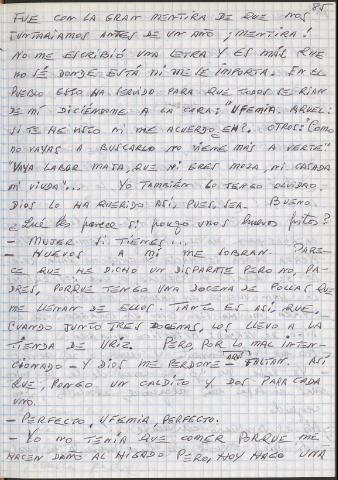 85.
FUE CON LA GRAN MENTIRA DE QUE NOS
JUNTARÍAMOS ANTES DE UN AÑO ¡MENTIRA!
NO ME ESCRIBIÓ UNA LETRA Y ES MÁS QUE
NO SÉ DONDE ESTÁ NI ME SE IMPORTA. EN EL
PUEBLO ESTO HA SERVIDO PARA QUE TODOS SE RIAN
DE MÍ DICIÉNDOME A LA CARA: "UFEMIA, AQUEL:
SI TE HE VISTO NI ME ACUERDO, EH!. OTROS: "COMO
NO VAYAS A BUSCARLO NO VIENE MÁS A VERTE"
"VAYA LABOR MATA, QUE NI ERES MOZA, NI CASADA
NI VIUDA"... YO TAMBIÉN LO TENGO OLVIDAO.
DIOS LO HA QUERIDO ASÍ, PUES, SEA. BUENO.
¿QUÉ LES PARECE SI PONGO UNOS HUEVOS FRITOS?
- MUJER SI TIENES...
- HUEVOS A MÍ ME SOBRAN. PARE-
CE QUE HE DICHO UN DISPARATE PERO NO, PA-
DRES, PORQUE TENGO UNA DOCENA DE POLLAS QUE
ME LLENAN DE ELLOS. TANTO ES ASÍ, QUE,
CUANDO JUNTO TRES DOCENAS, LOS LLEVO A LA
TIENDA DE URIZ. PERO, POR LO MAL INTEN-
CIONADO - Y DIOS ME PERDONE - AQUÍ FALTAN. ASÍ
QUE, PONGO UN CALDITO Y DOS PARA CADA
UNO.
- PERFECTO, UFEMIA, PERFECTO.
- YO NO TENÍA QUE COMER PORQUE ME
HACEN DAÑO AL HIGADO PERO, HOY HAGO UNA